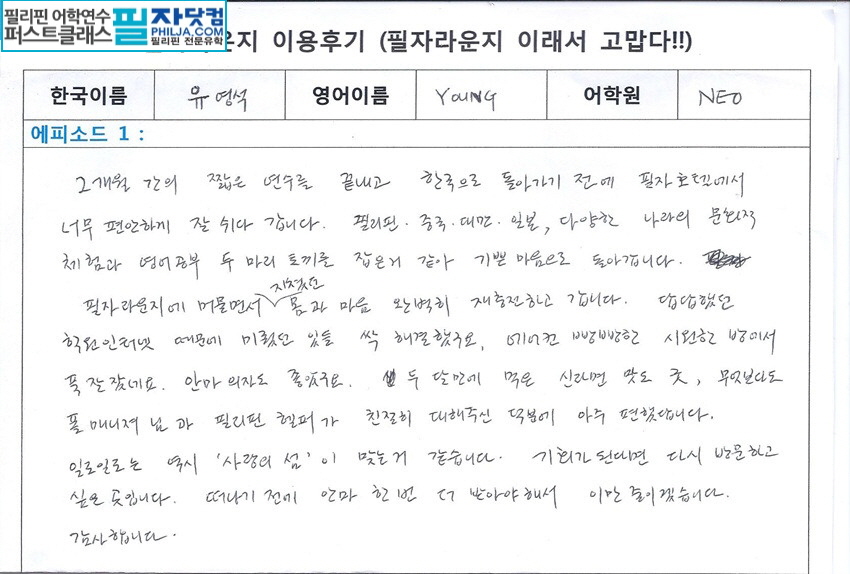 필리핀 어학연수
퍼스트클래스
필자닷컴
PHILJA.COM
필리핀 전문유학
운지 이용후기 (필자라운지 이래서 고맙다!!)
한국이름 유영석 영어이름 YOUNG 어학원 NEO
에피소드 1 :
2개월 간의 짧은 연수를 끝내고 한국으로 돌아가기 전에 필자호텔에서
너무 편안하게 잘 쉬다 갑니다. 필리핀·중국·대만·일본, 다양한 나라의 문화적
체험과 영어공부 두 마리 토끼를 잡은거 같아 기쁜 마음으로 돌아갑니다.
필자라운지에 머물면서 지쳤던 몸과 마음 완벽히 재충전하고 갑니다. 답답했던
학원인터넷 때문에 미뤘던 일들 싹 해결했구요, 에어컨 빵빵한 시원한 방에서
푹 잤네요. 안마의자도 좋았구요. 두 달만에 먹은 신라면 맛도 굿, 무엇보다도
폴 매니져님과 필리핀 헬퍼가 친절히 대해주신 덕분에 아주 편했답니다.
일로일로는 역시 '사랑의 섬'이 맞는거 같습니다. 기회가 된다면 다시 방문하고
싶은 곳입니다. 떠나기 전에 안마 한번 더 받아야해서 이만 줄이겠습니다.
감사합니다.